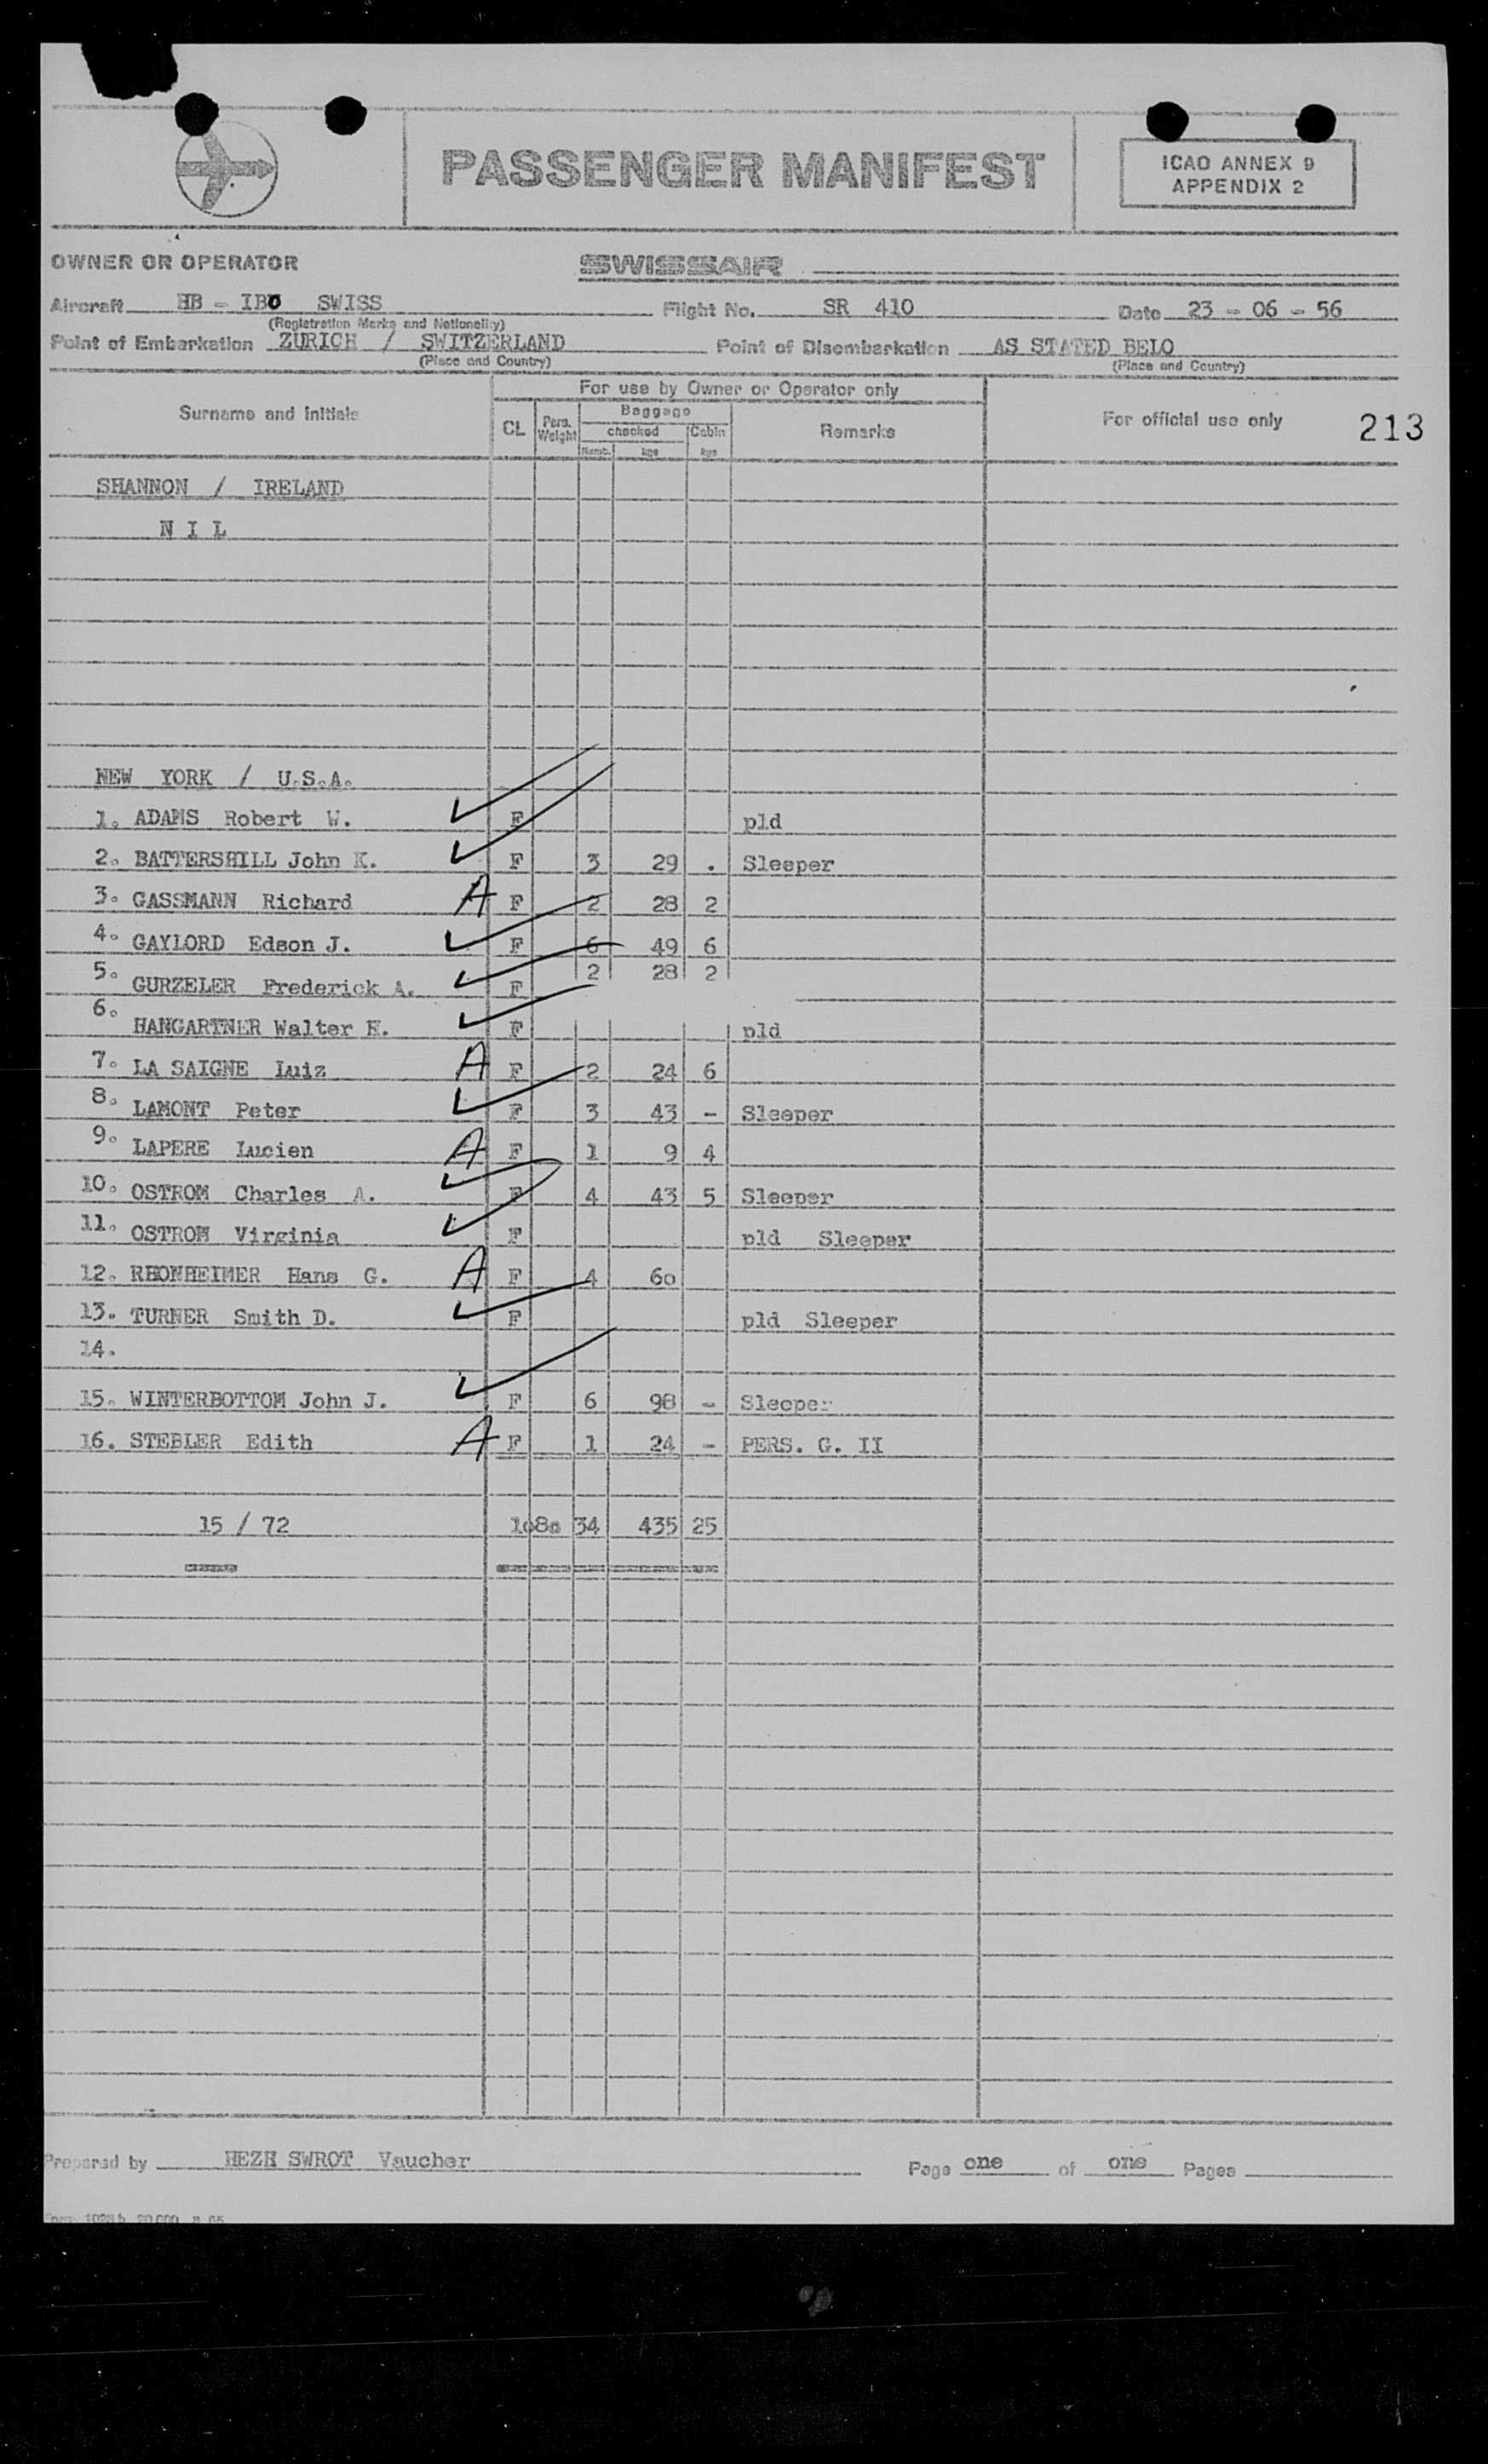 PASSENGER MANIFEST
ICAO ANNEX 9
APPENDIX 2
OWNER OR OPERATOR SWISSAIR
Aircraft HB - IBO SWISS Flight No. SR 410 Date 23 - 06 - 56
(Registration Marks and Nationality)
Point of Embarkation ZURICH / SWITZERLAND Point of Disembarkation AS STATED BELO
(Place and Country) (Place and Country)
For use by Owner or Operator only
Surname and Initials CL Pers. Weight Baggage checked Numb. kgs Cabin kgs Remarks For official use only 213
SHANNON / IRELAND
N I L
NEW YORK / U.S.A.
1. ADAMS Robert W. F pld
2. BATTERSHILL John K. F 3 29 . Sleeper
3. GASSMANN Richard A F 2 28 2
4. GAYLORD Edson J. F 6 49 6
5. GURZELER Frederick A. F 2 28 2
6. HANGARTNER Walter H. F pld
7. LA SAIGNE Luiz A F 2 24 6
8. LAMONT Peter F 3 43 - Sleeper
9. LAPERE Lucien A F 1 9 4
10. OSTROM Charles A. F 4 43 5 Sleeper
11. OSTROM Virginia F pld Sleeper
12. RHONHEIMER Hans G. A F 4 60
13. TURNER Smith D. F pld Sleeper
14.
15. WINTERBOTTOM John J. F 6 98 - Sleeper
16. STEBLER Edith A F 1 24 - PERS. G. II
15 / 72 1080 34 435 25
Prepared by HEZH SWROT Vaucher Page one of one Pages